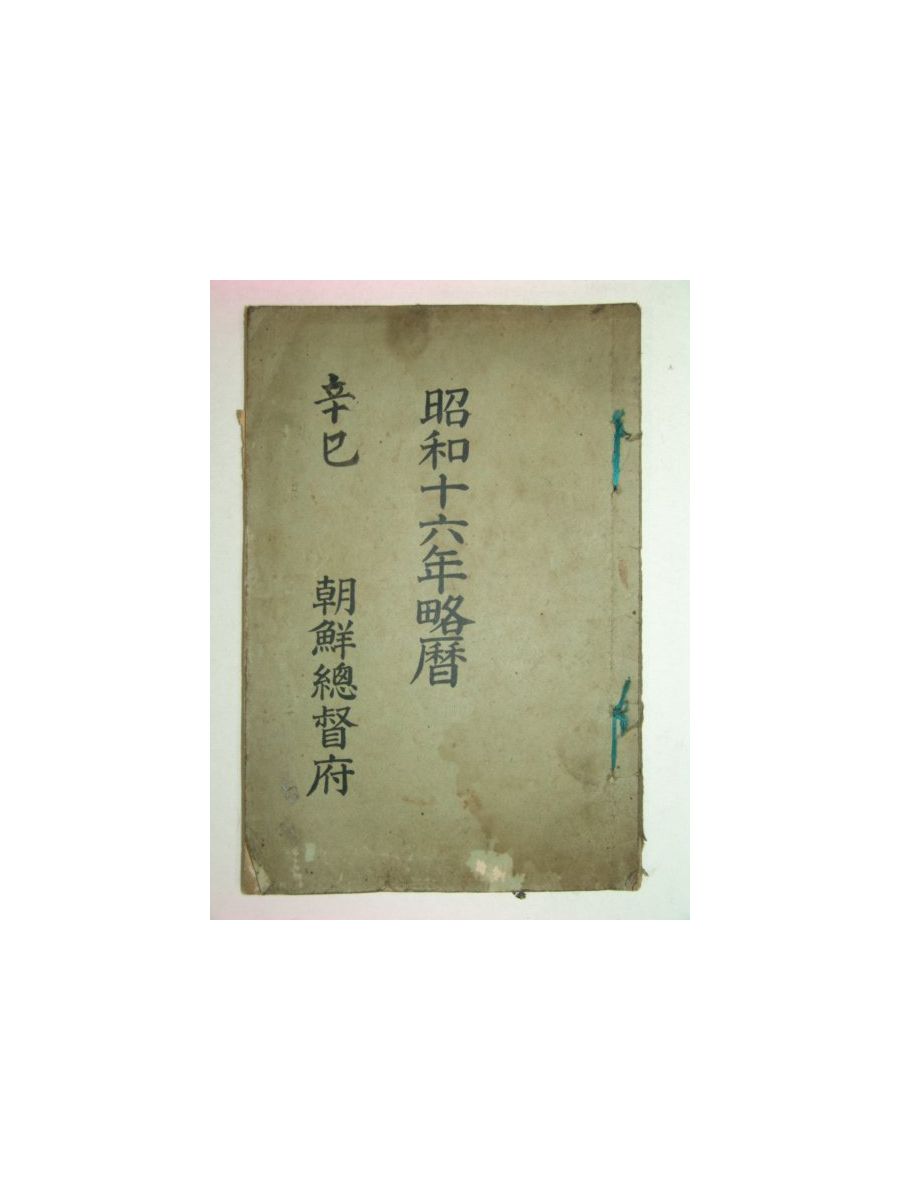 昭和十六年略暦
辛巳
朝鮮總督府